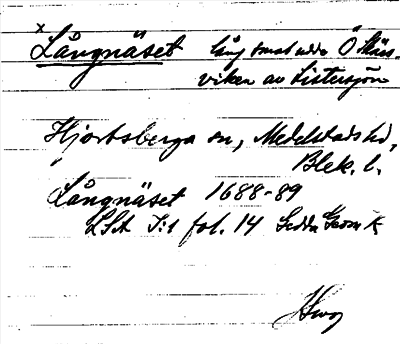 x Långnäset lång smal udde Ö
viken av Listersjön
Hjortsberga sn, Medelstads hd,
Blek. l.
Långnäset 1688-89
LSA I:1 fol. 14 Gedda Geom K